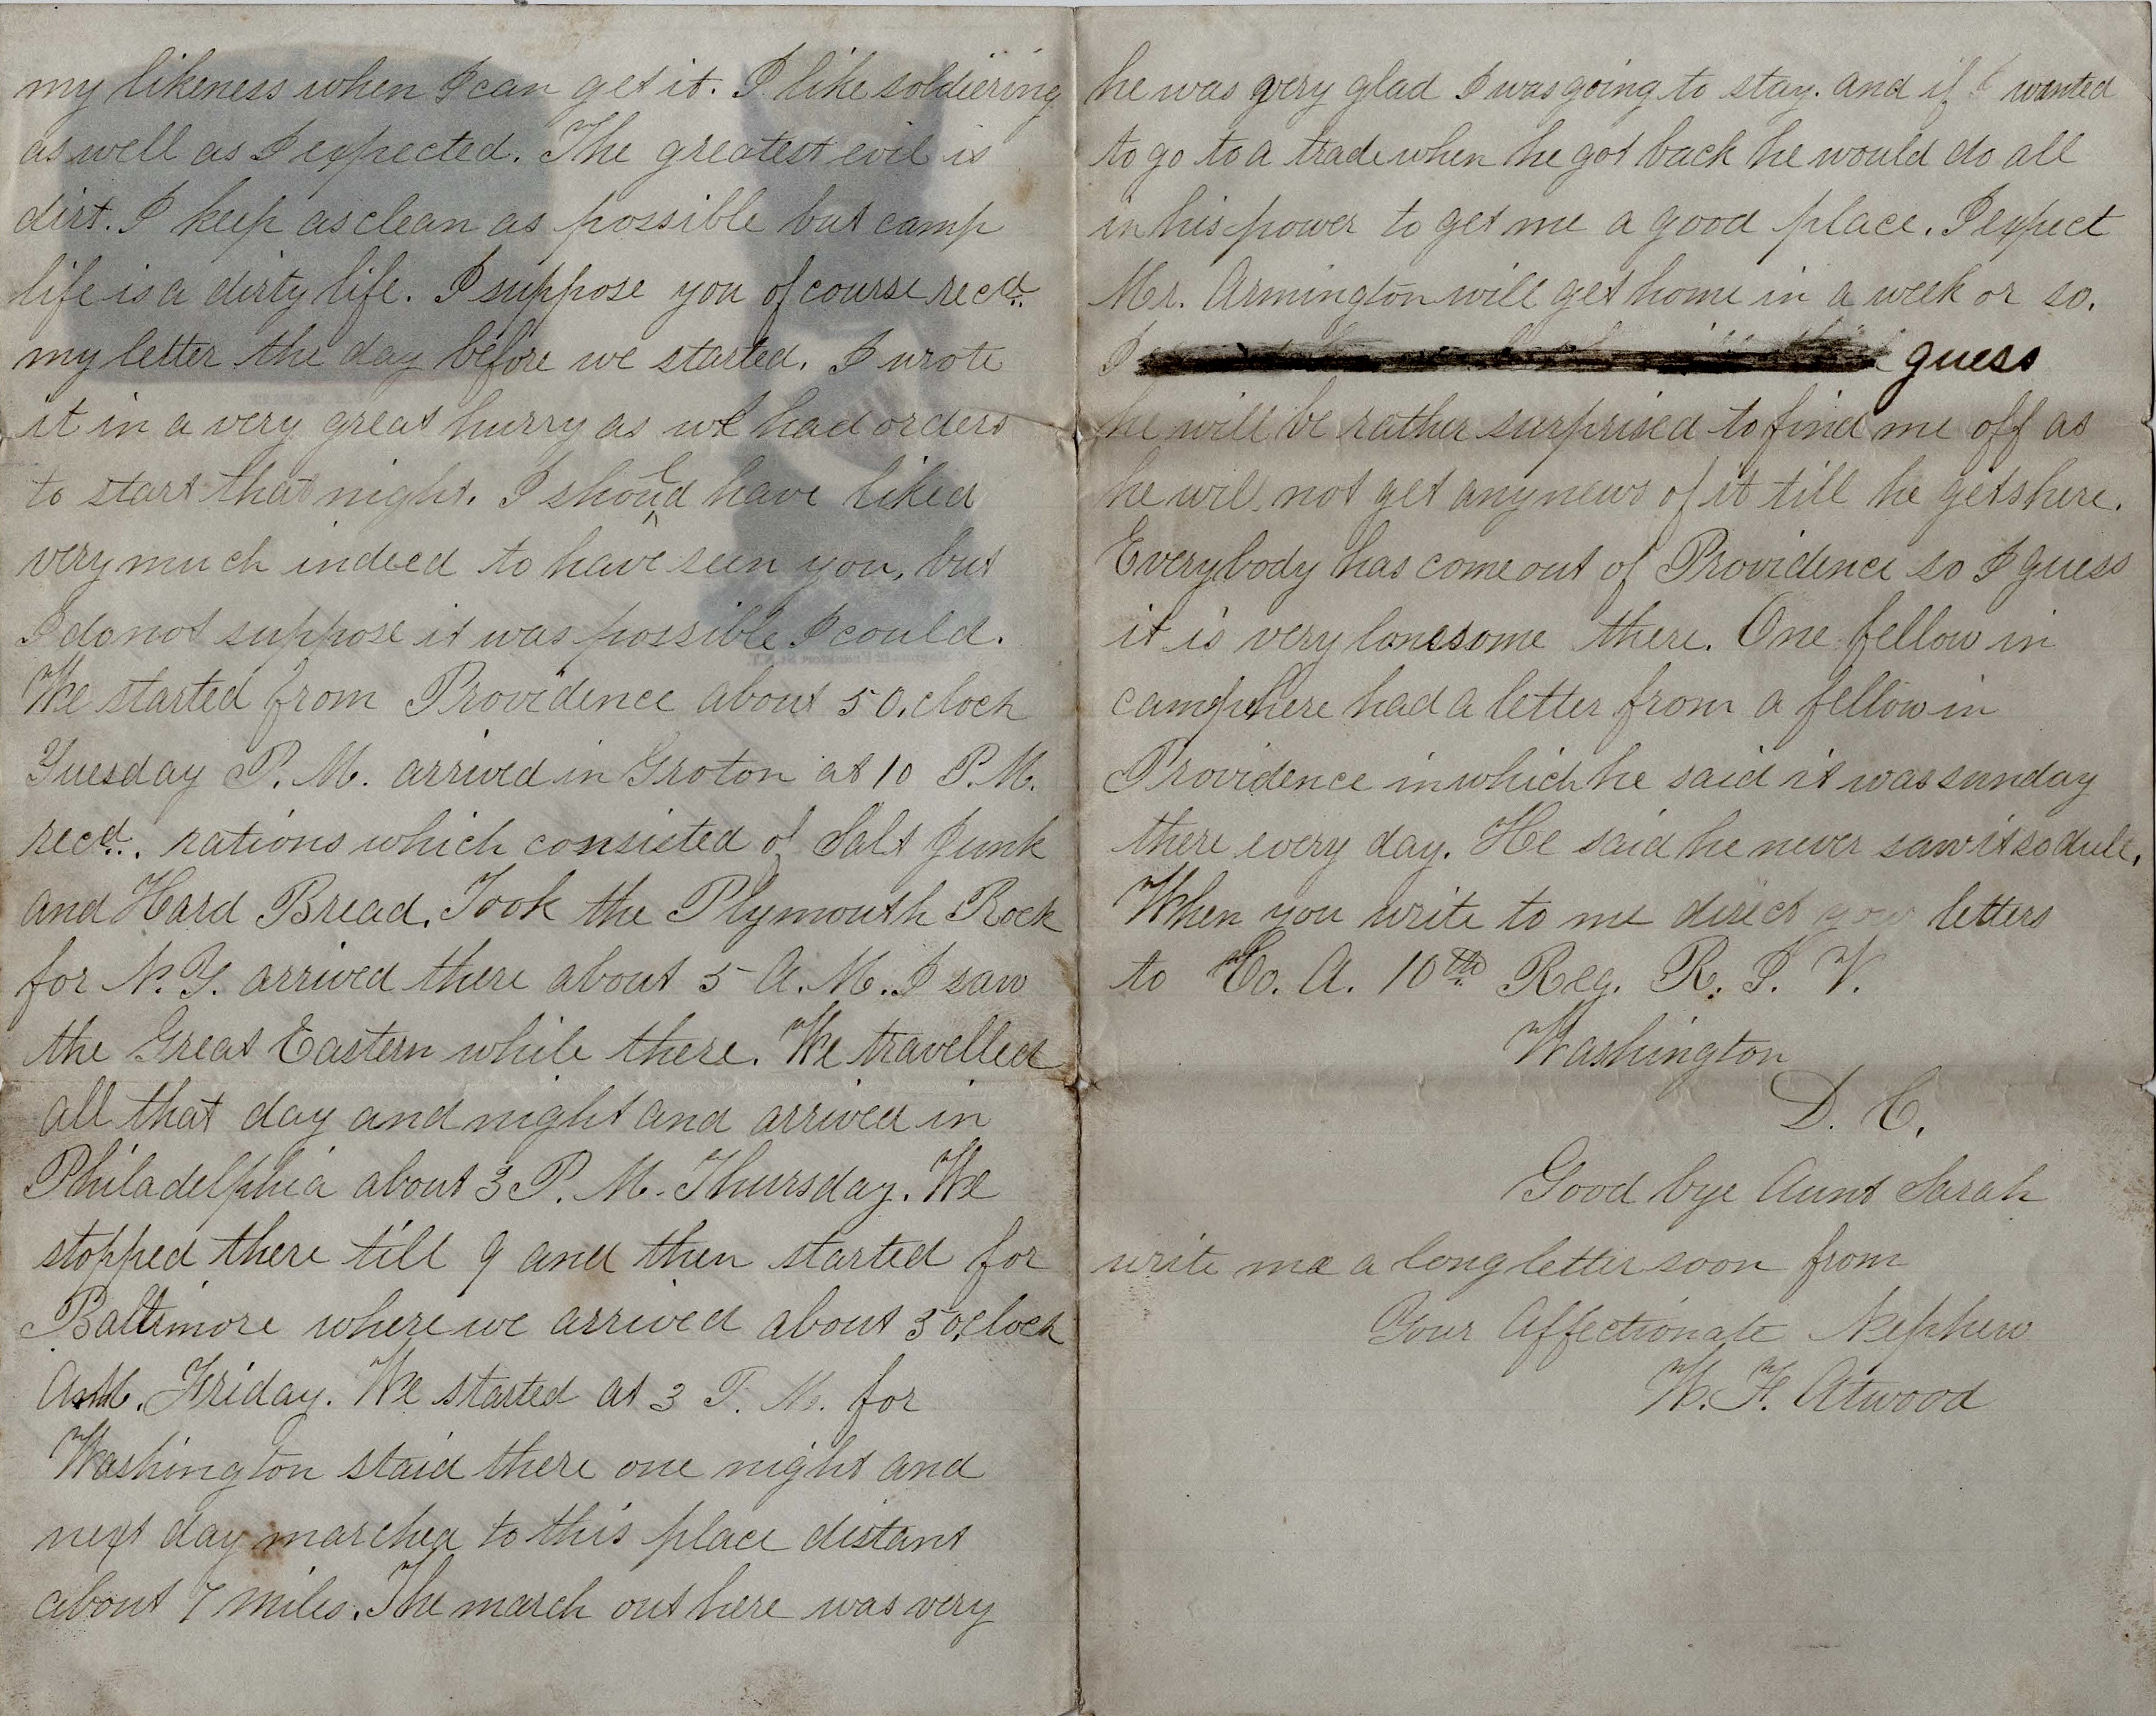 my likeness when I can get it. I like soldiering
as well as I expected. The greatest evil is
dirt. I keep as clean as possible but camp
life is a dirty life. I suppose you of course recd.
my letter the day before we started. I wrote
it in a very great hurry as we had orders
to start that night. I should have liked
very much indeed to have seen you, but
I do not suppose it was possible I could.
We started from Providence about 5 O,clock
Tuesday P. M. arrived in Groton at 10 P. M.
recd. rations which consisted of Salt Junk
and Hard Bread. Took the Plymouth Rock
for N. Y. arrived there about 5 A. M. I saw
the Great Eastern while there. We travelled
all that day and night and arrived in
Philadelphia about 3 P. M. Thursday. We
stopped there till 9 and then started for
Baltimore where we arrived about 5 o,clock
A.M. Friday. We started at 3 P. M. for
Washington staid there one night and
next day marched to this place distant
about 7 miles. The march out here was very
he was very glad I was going to stay. and if I wanted
to go to a trade when he got back he would do all
in his power to get me a good place. I expect
Mr. Armington will get home in a week or so.
I guess
he will be rather surprised to find me off as
he will not get any news of it till he gets here.
Everybody has come out of Providence so I guess
it is very lonesome there. One fellow in
camp here had a letter from a fellow in
Providence in which he said it was sunday
there every day. He said he never saw it so dull.
When you write to me direct your letters
to Co. A. 10th Reg. R. I. V.
Washington
D. C.
Good bye Aunt Sarah
write me a long letter soon from
Your Affectionate Nephew
W. F. Atwood